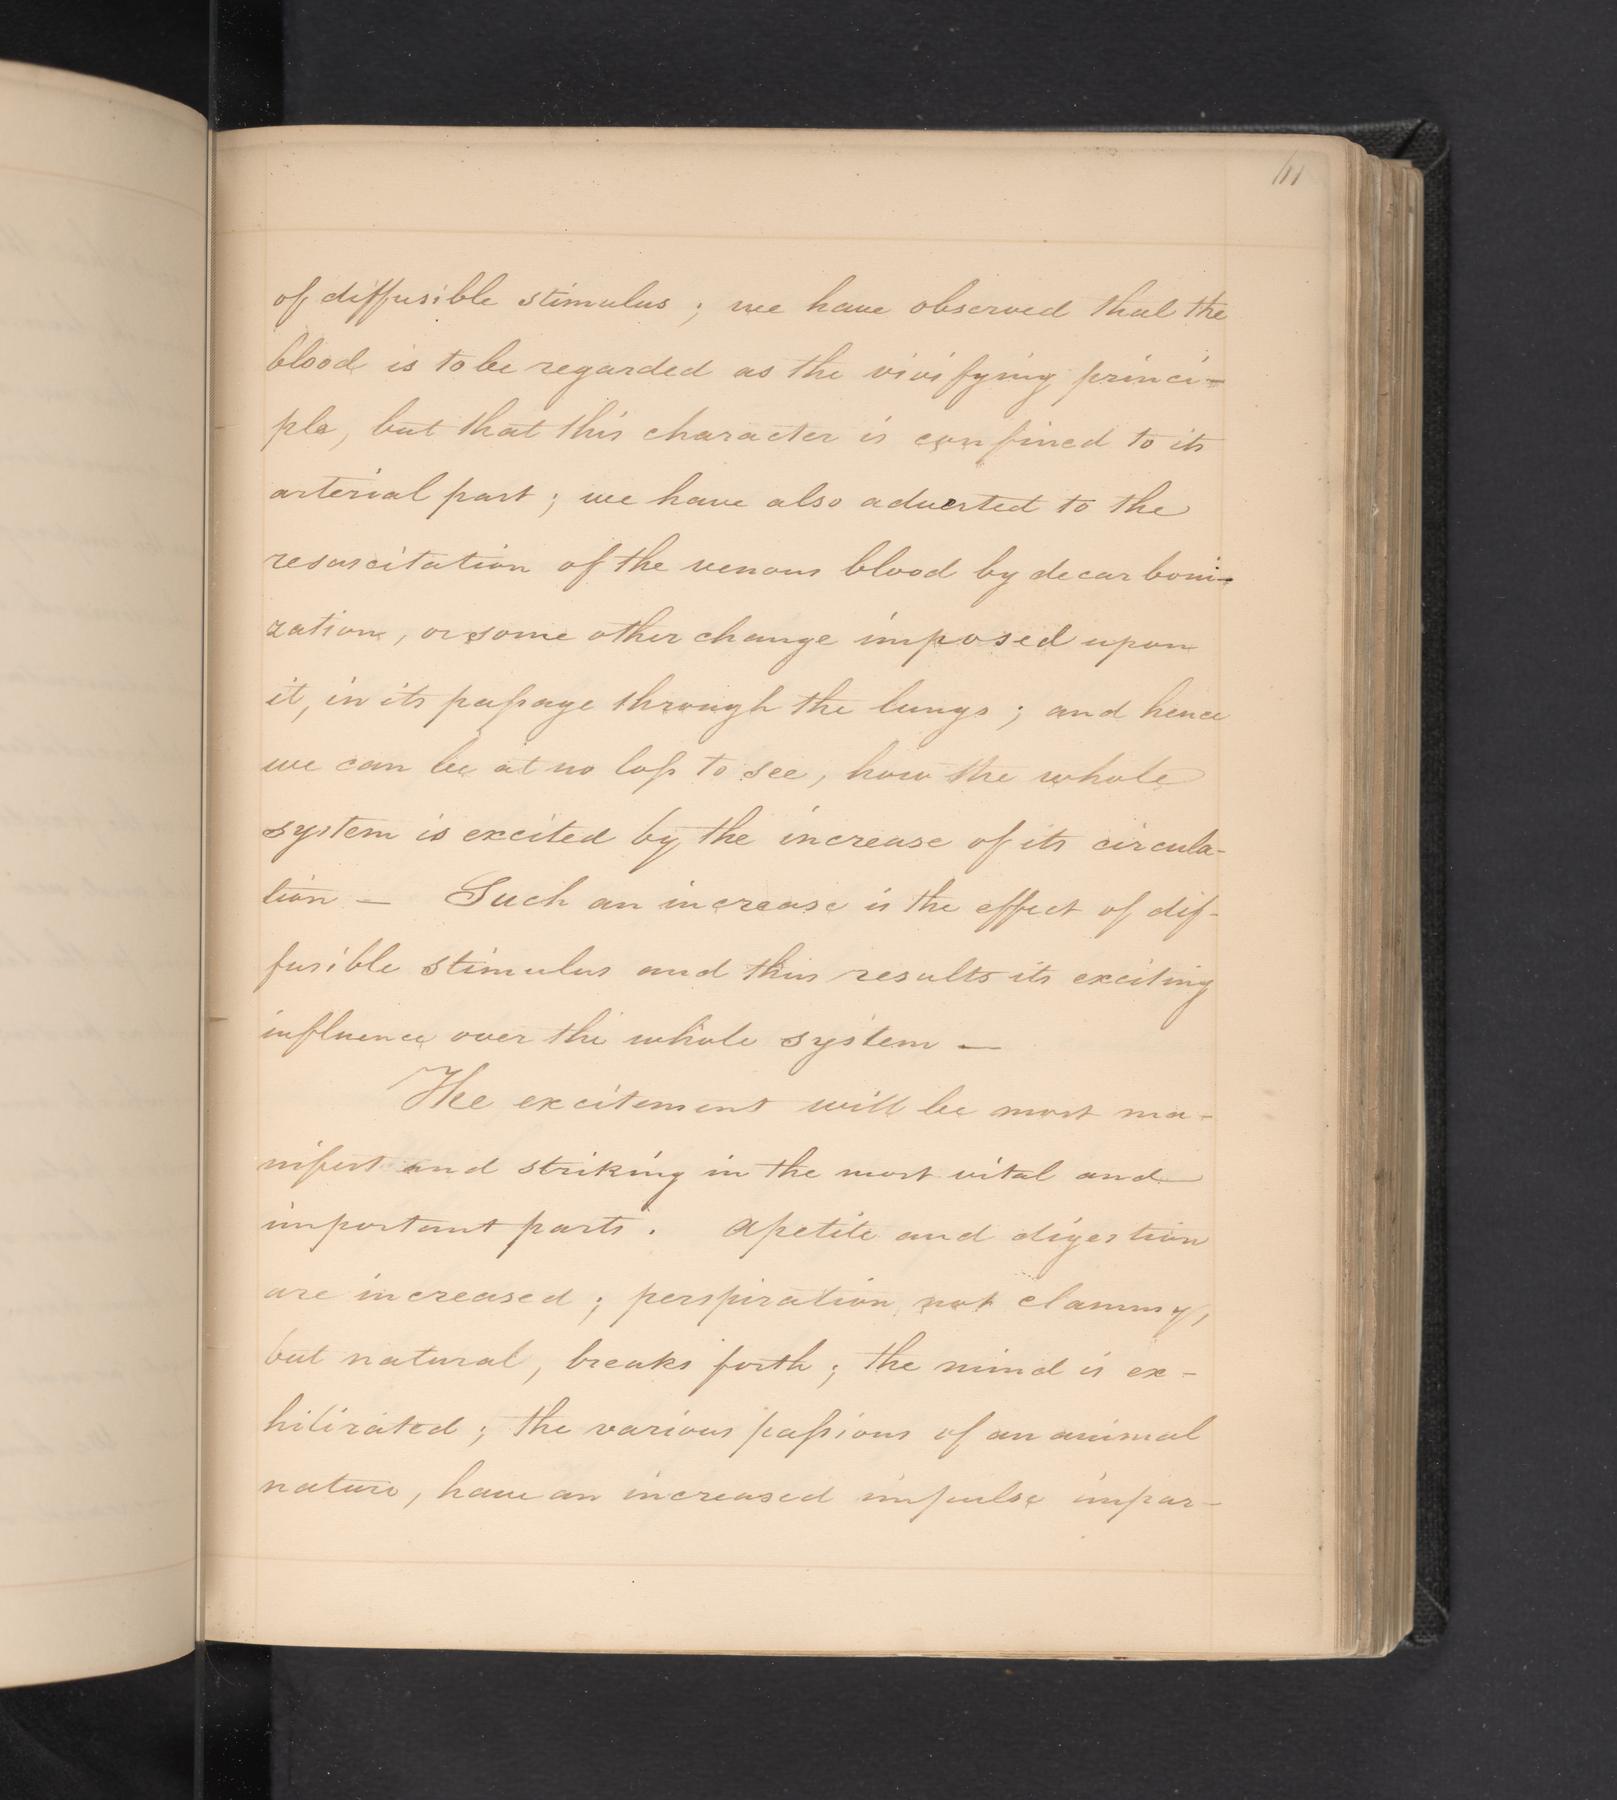 of diffusible stimulus; we have observed that the
blood is to be regarded as the vivifying princi-
ple, but that this character is confined to its
arterial part; we have also adverted to the
resuscitation of the venous blood by decarboni-
zation, or some other change imposed upon
it, in its passage through the lungs; and hence
we can be at no loss to see, how the whole
system is excited by the increase of its circula-
tion — Such an increase is the effect of dif-
fusible stimulus and thus results its exciting
influence over the whole system —
The excitement will be most ma-
nifest and striking in the most vital and
important parts. Apetite and digestion
are increased; perspiration not clammy,
but natural, breaks forth; the mind is ex-
hilirated; the various passions of an animal
nature, have an increased impulse impar-